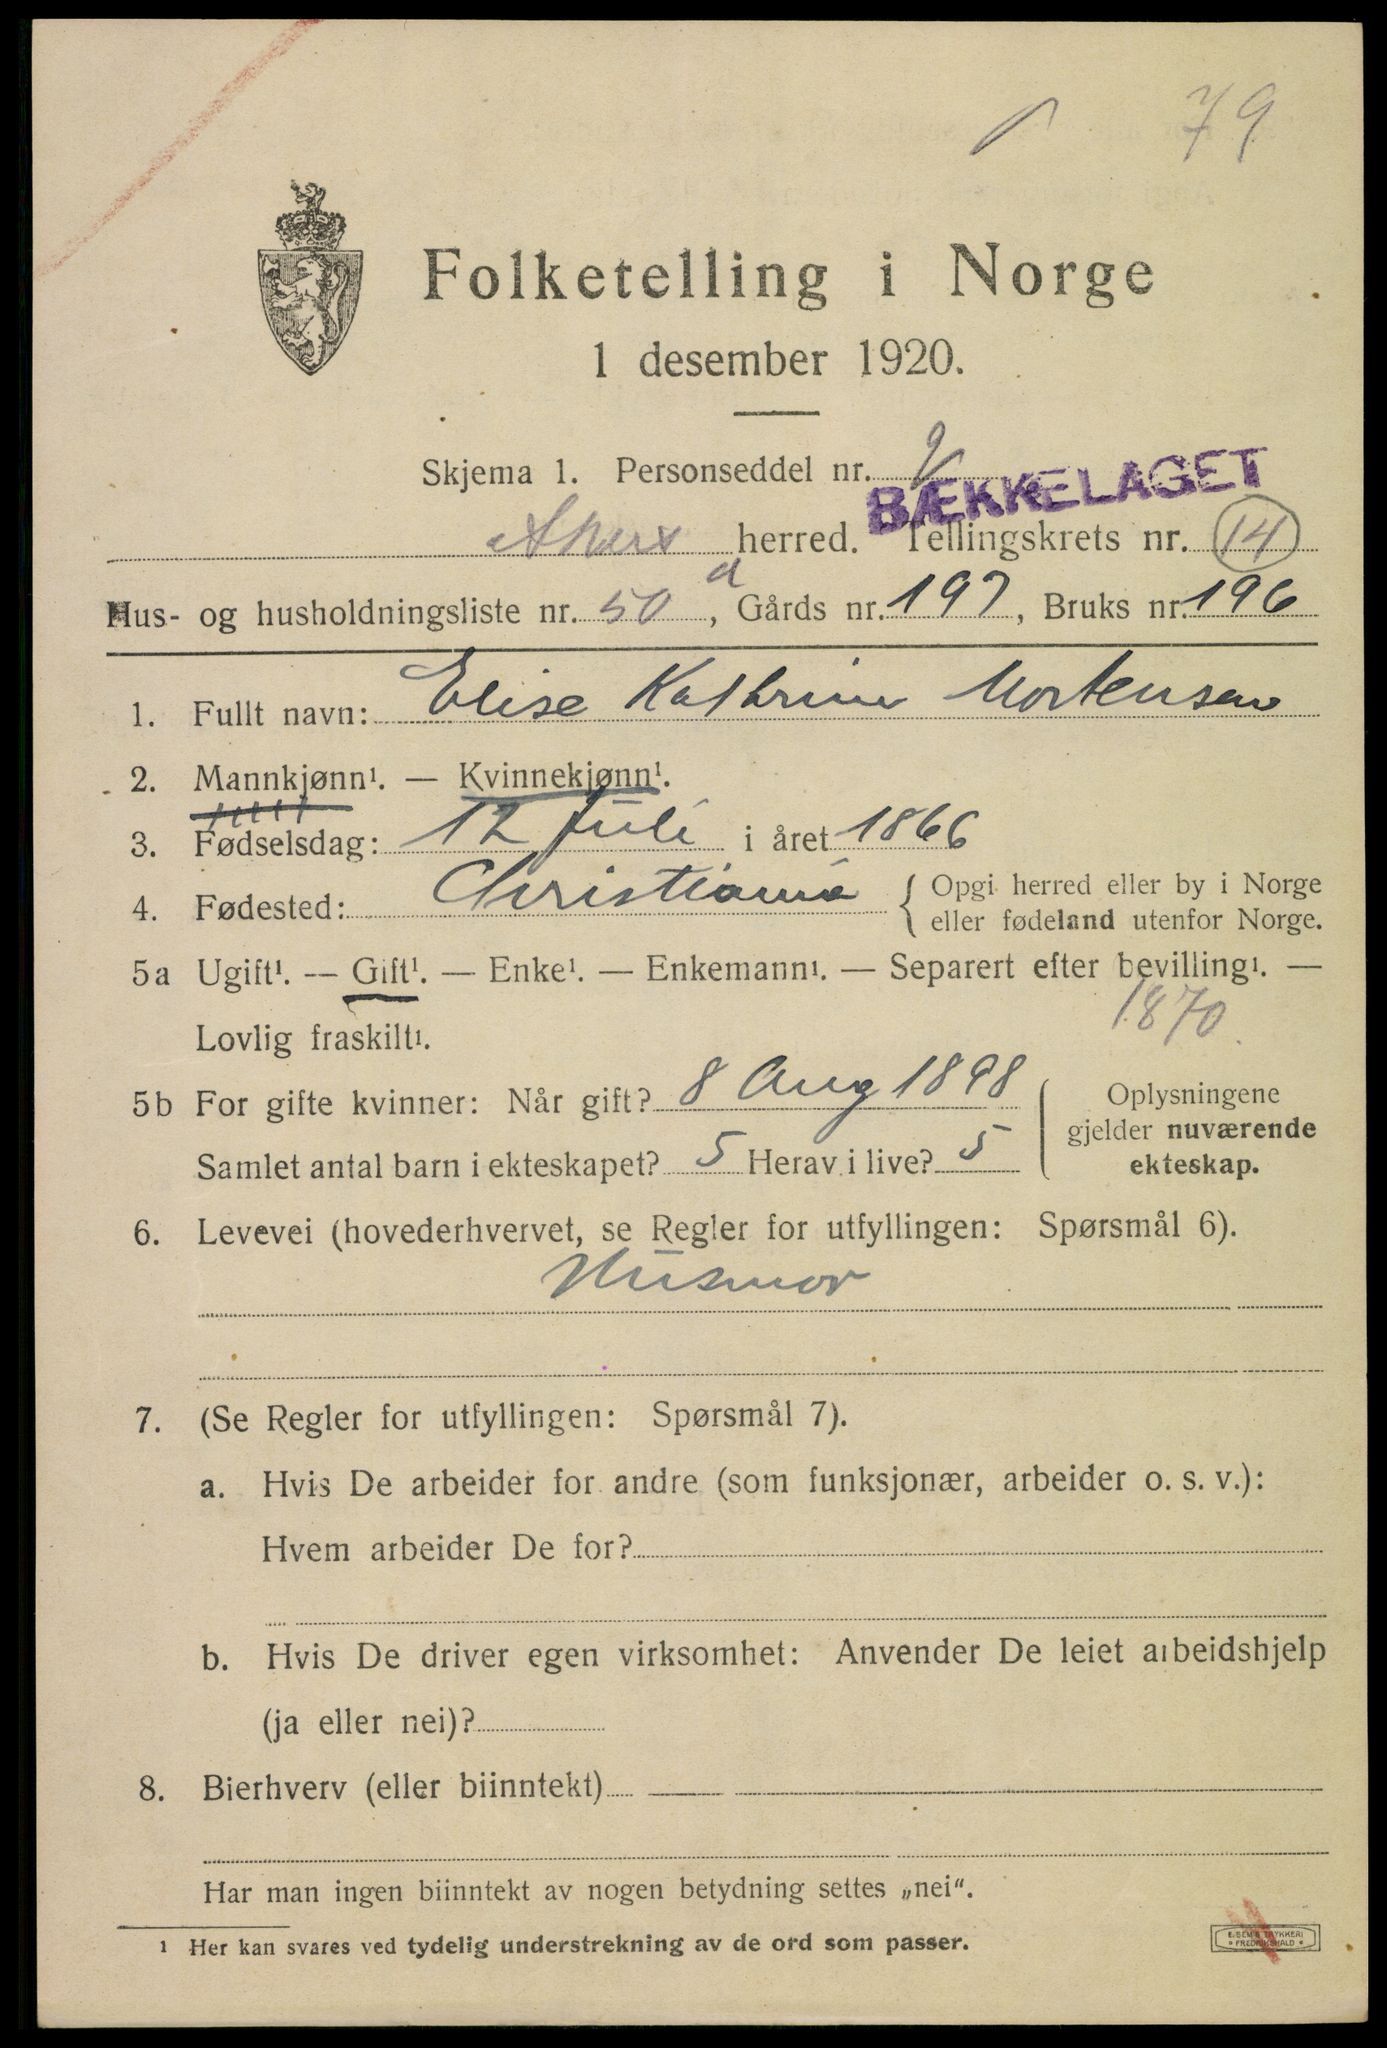 79
Folketelling i Norge
1 desember 1920.
Skjema 1. Personseddel nr. 2
BÆKKELAGET
Akers herred. Tellingskrets nr. 14
Hus- og husholdningsliste nr. 50 d, Gårds nr. 197, Bruks nr. 196
1. Fullt navn: Elise Kathrine Mortensen
2. Mannkjønn¹. — Kvinnekjønn¹.
3. Fødselsdag: 12 Juli i året 1866
4. Fødested: Christiania { Opgi herred eller by i Norge
eller fødeland utenfor Norge.
5a Ugift¹. — Gift¹. — Enke¹. — Enkemann¹. — Separert efter bevilling¹. —
Lovlig fraskilt¹.
1870
5b For gifte kvinner: Når gift? 8 Aug 1898
Samlet antal barn i ekteskapet? 5 Herav i live? 5
Oplysningene
gjelder nuværende
ekteskap.
6. Levevei (hovederhvervet, se Regler for utfyllingen: Spørsmål 6).
Husmor
7. (Se Regler for utfyllingen: Spørsmål 7).
a. Hvis De arbeider for andre (som funksjonær, arbeider o. s. v.):
Hvem arbeider De for?
b. Hvis De driver egen virksomhet: Anvender De leiet arbeidshjelp
(ja eller nei)?
8. Bierhverv (eller biinntekt) —
Har man ingen biinntekt av nogen betydning settes „nei“.
¹ Her kan svares ved tydelig understrekning av de ord som passer.
E. SEM'S TRYKKERI
FREDRIKSHALD